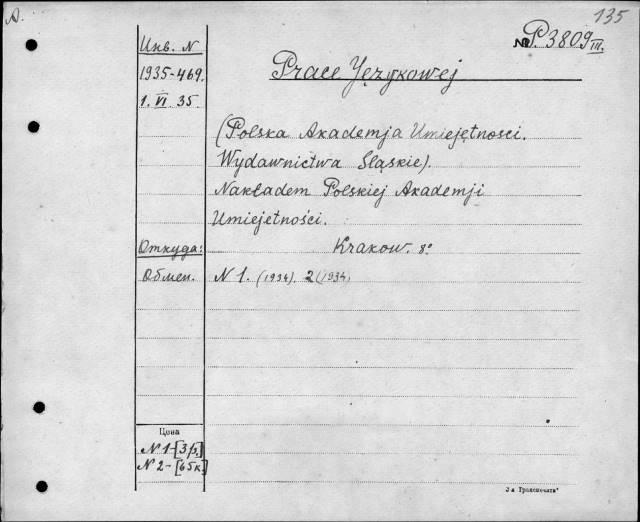 A.
135
№ P. 3809 III.
Инв. N
1935-469.
1. VI. 35
Prace Językowej
(Polska Akademja Umiejętnosci.
Wydawnictwa Śląskie).
Nakładem Polskiej Akademji
Umiejetności.
Откуда:
Krakow. 8°
Обмен.
N 1. (1934). 2 (1934)
Цена
N 1-[3 р.]
N 2-[65к.]
3-я Транспечать"